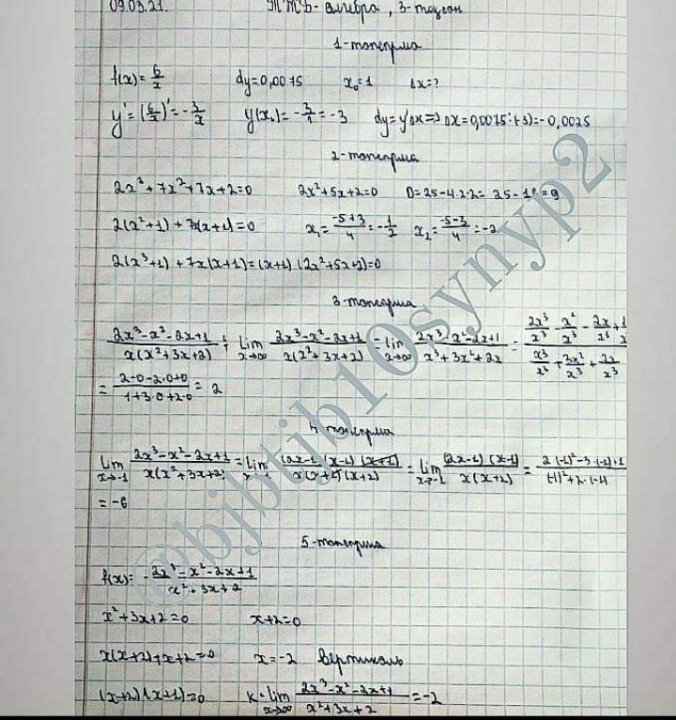 09.03.21. ТЖБ-алгебра, 3-тоқсан
1-тапсырма
f(x)=6/x dy=0,0075 x₀=1 Δx=?
y'=(6/x)'=-3/x y(x₀)=-3/1=-3 dy=y'Δx=>Δx=0,0075:(+3)=-0,0025
2-тапсырма
2x³+7x²+7x+2=0 2x²+5x+2=0 D=25-4·2·2=25-16=9
2(x²+1)+7x(x+1)=0 x₁=(-5+3)/4=-1/2 x₂=(-5-3)/4=-2
2(x³+1)+7x(x+1)=(x+1)(2x²+5x+2)=0
3-тапсырма
(2x³-x²-2x+1)/(x(x²+3x+2)); lim x→∞ (2x³-x²-2x+1)/(x(x²+3x+2))=lim x→∞ (2x³-x²-2x+1)/(x³+3x²+2x)=(2x³/x³-x²/x³-2x/x³+1/x)/(x³/x³+3x²/x³+2x/x³)
=(2-0-2·0+0)/(1+3·0+2·0)=2
4-тапсырма
lim x→-1 (2x³-x²-2x+1)/(x(x²+3x+2))=lim x→-1 ((2x-1)(x-1)(x+1))/(x(x+1)(x+2))=lim x→-1 ((2x-1)(x-1))/(x(x+2))=(2(-1)²-3·(-1)+1)/((-1)²+2·(-1))
=-6
5-тапсырма
f(x)=-(2x³-x²-2x+1)/(x²+3x+2)
x²+3x+2=0 x+2=0
x(x+2)+x+2=0 x=-2 вертикаль
(x+2)(x+1)=0 k=lim x→∞ (2x³-x²-2x+1)/(x²+3x+2)=-2
@bjbtjb10synyp2